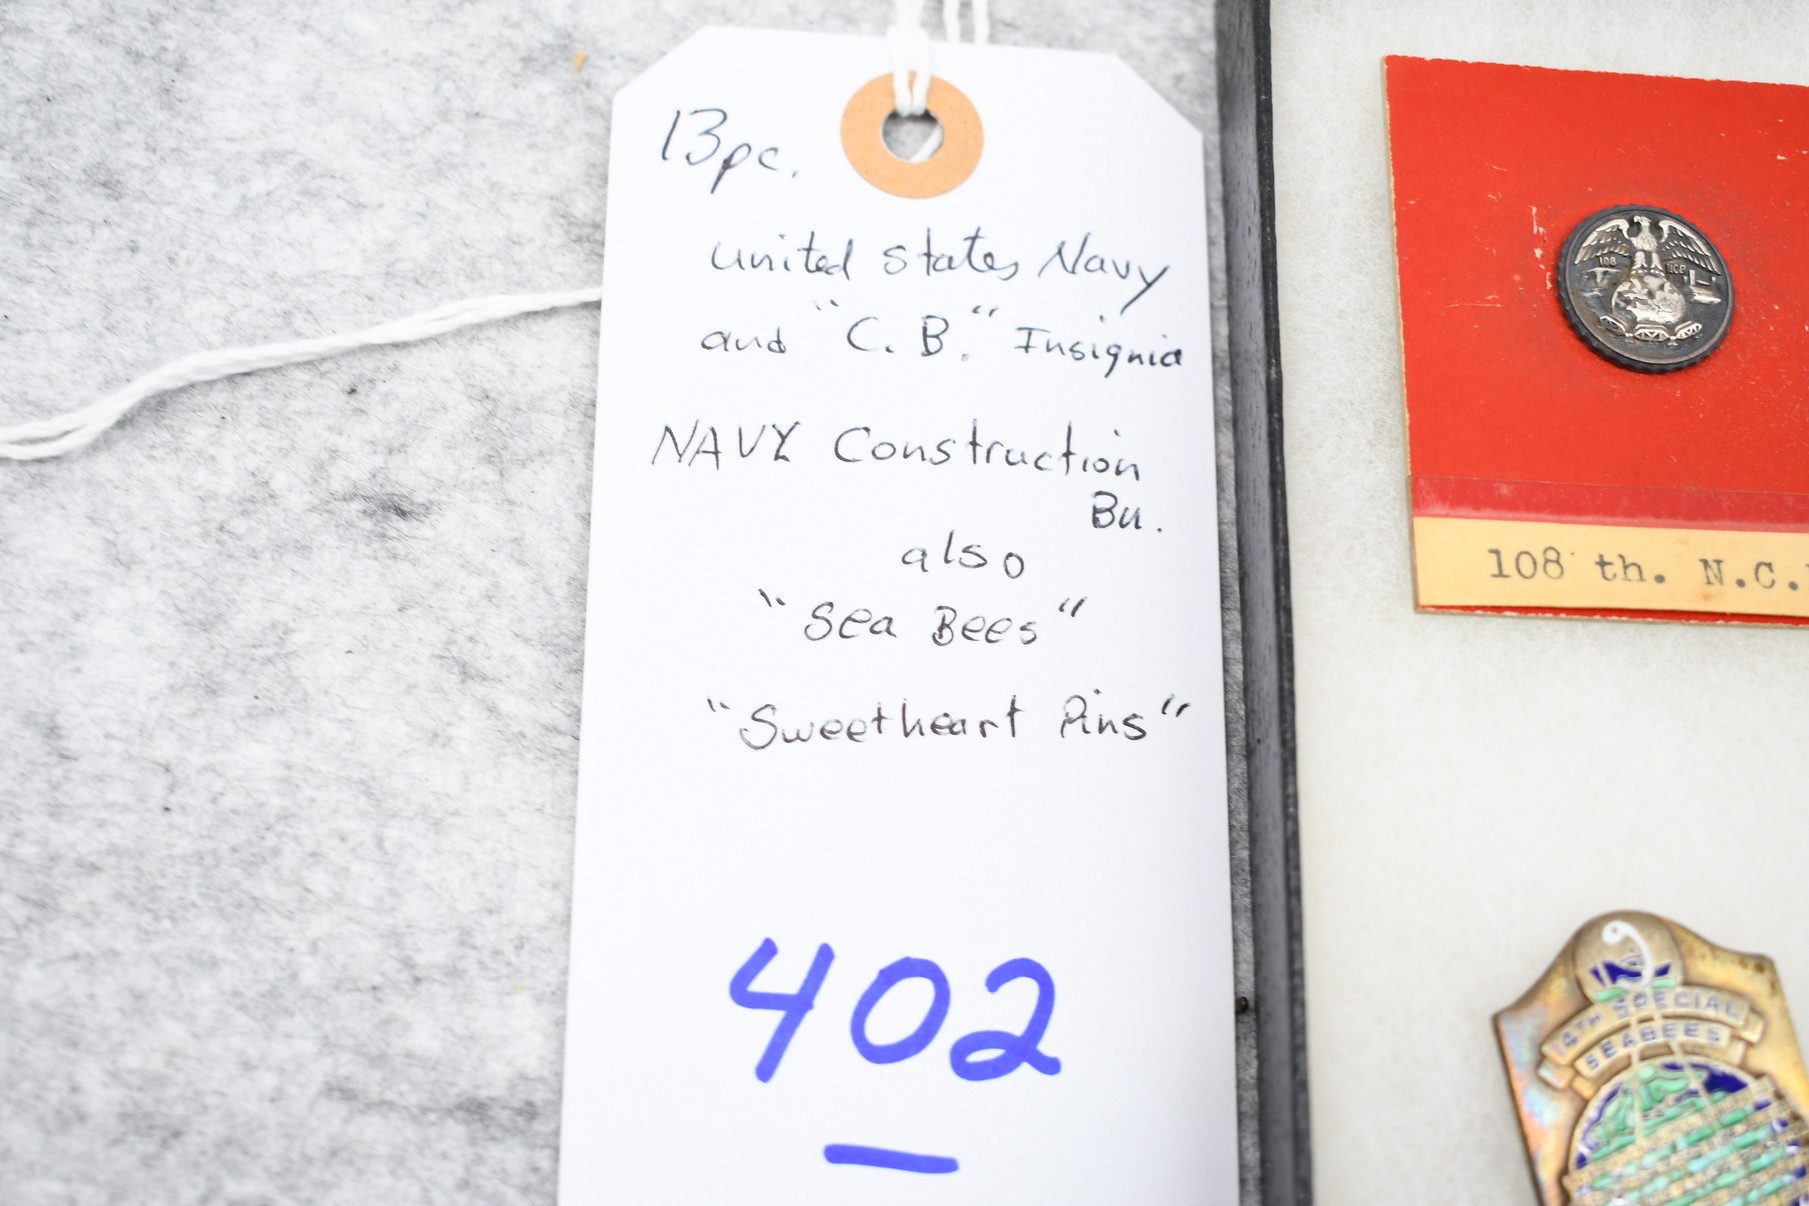 13pc.
United States Navy
and "C. B." Insignia
NAVY Construction
Bu.
also
"Sea Bees"
"Sweetheart Pins"
402
108 th. N.C.
108
4TH SPECIAL
SEABEES